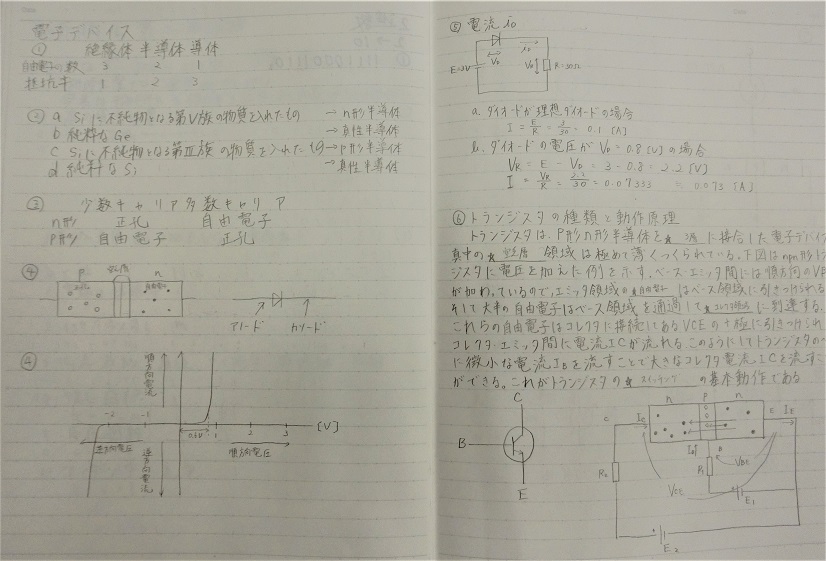 電子デバイス
① 絶縁体 半導体 導体
自由電子の数 3 2 1
抵抗率 1 2 3
② a Siに不純物となる第V族の物質を入れたもの → n形半導体
b 純粋なGe → 真性半導体
c Siに不純物となる第Ⅲ族の物質を入れたもの → P形半導体
d 純粋なSi → 真性半導体
③ 少数キャリア 多数キャリア
n形 正孔 自由電子
P形 自由電子 正孔
④
P n
自由電子
アノード カソード
④
順方向電流
-2 -1 1 2 3 [V]
逆方向電圧 順方向電圧
逆方向電流
⑤ 電流 io
E=3V VD Vo R=30Ω
a. ダイオードが理想ダイオードの場合
I = E/R = 3/30 = 0.1 [A]
b. ダイオードの電圧が VD = 0.8[V] の場合
VR = E - VD = 3 - 0.8 = 2.2 [V]
I = VR/R = 2.2/30 = 0.07333 ≒ 0.073 [A]
⑥ トランジスタの種類と動作原理
トランジスタは、P形n形半導体を ★ 3層 に接合した電子デバイス
真中の ★ 領域は極めて薄くつくられている。下図はnpn形トラン
ジスタに電圧を加えた例を示す。ベース-エミッタ間には順方向のV
が加わっているので、エミッタ領域の ★自由電子 はベース領域に引きつけられる
そして大半の自由電子はベース領域を通過して ★コレクタ領域 に到達する。
これらの自由電子はコレクタに接続してあるVCEの+極に引きつけられ
コレクタ-エミッタ間に電流ICが流れる。このようにしてトランジスタの
に微小な電流IBを流すことで大きなコレクタ電流ICを流すこ
ができる。これがトランジスタの ★ スイッチング の基本動作である
C
B
E
n P n
C IC E IE
IB B
R2 R1 VBE
VCE E1
E2